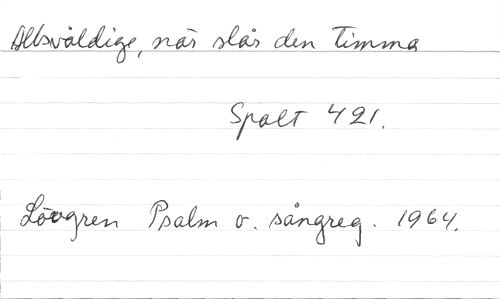 Allsvåldige, når slår den timma
Spalt 421.
Lövgren Psalm o. sångreg. 1964.